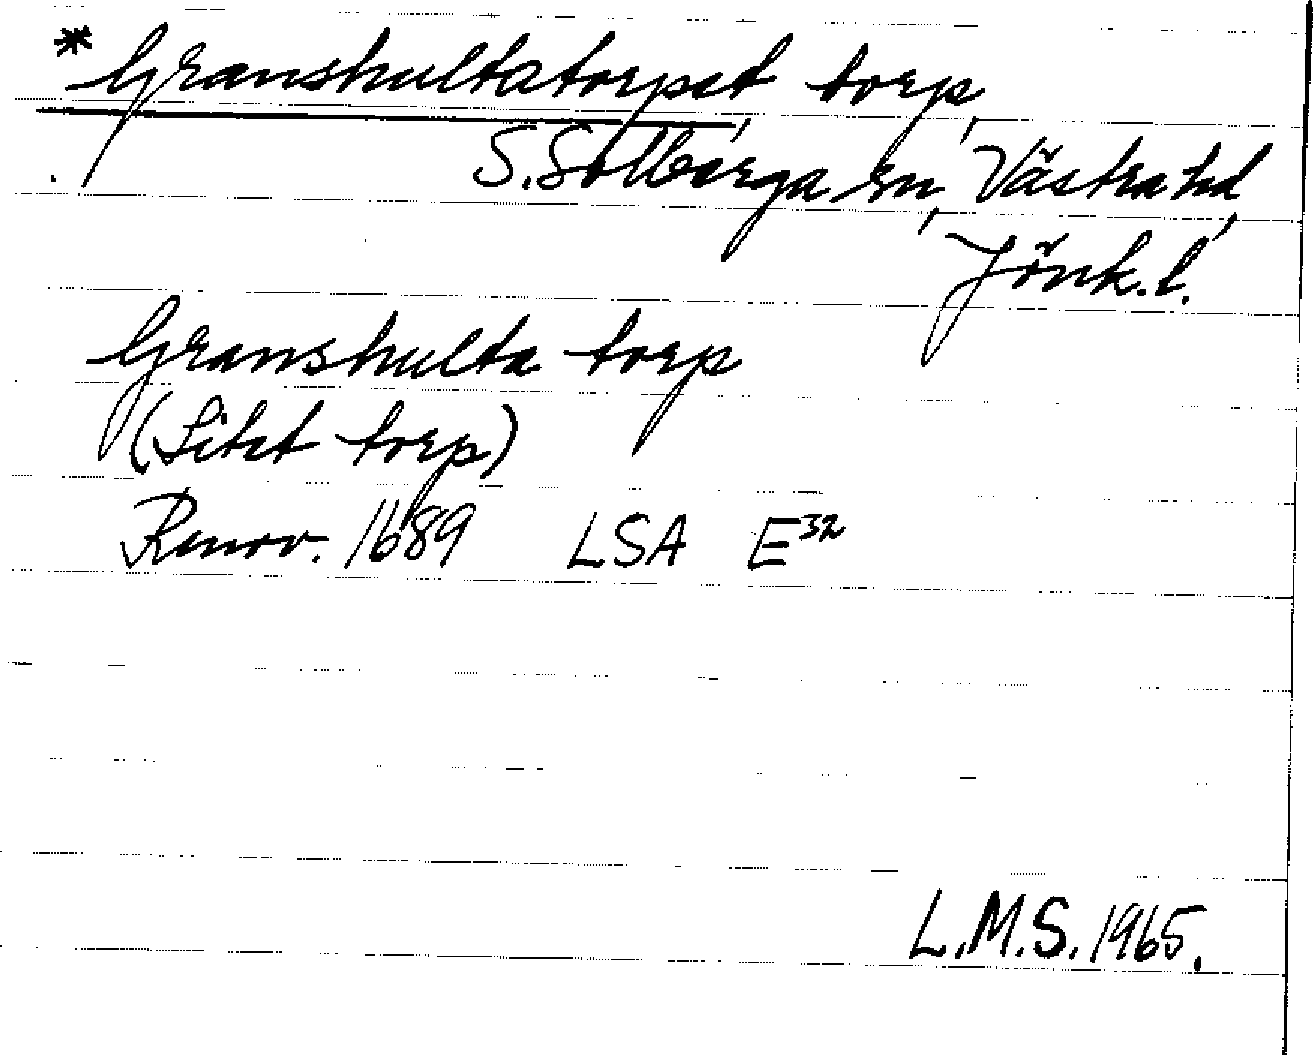 * Granshultatorpet, torp,
S. Solberga sn, Västra hd,
Jönk. l.
Granshulta torp
(Litet torp)
Renov. 1689 LSA E32
L.M.S. 1965.